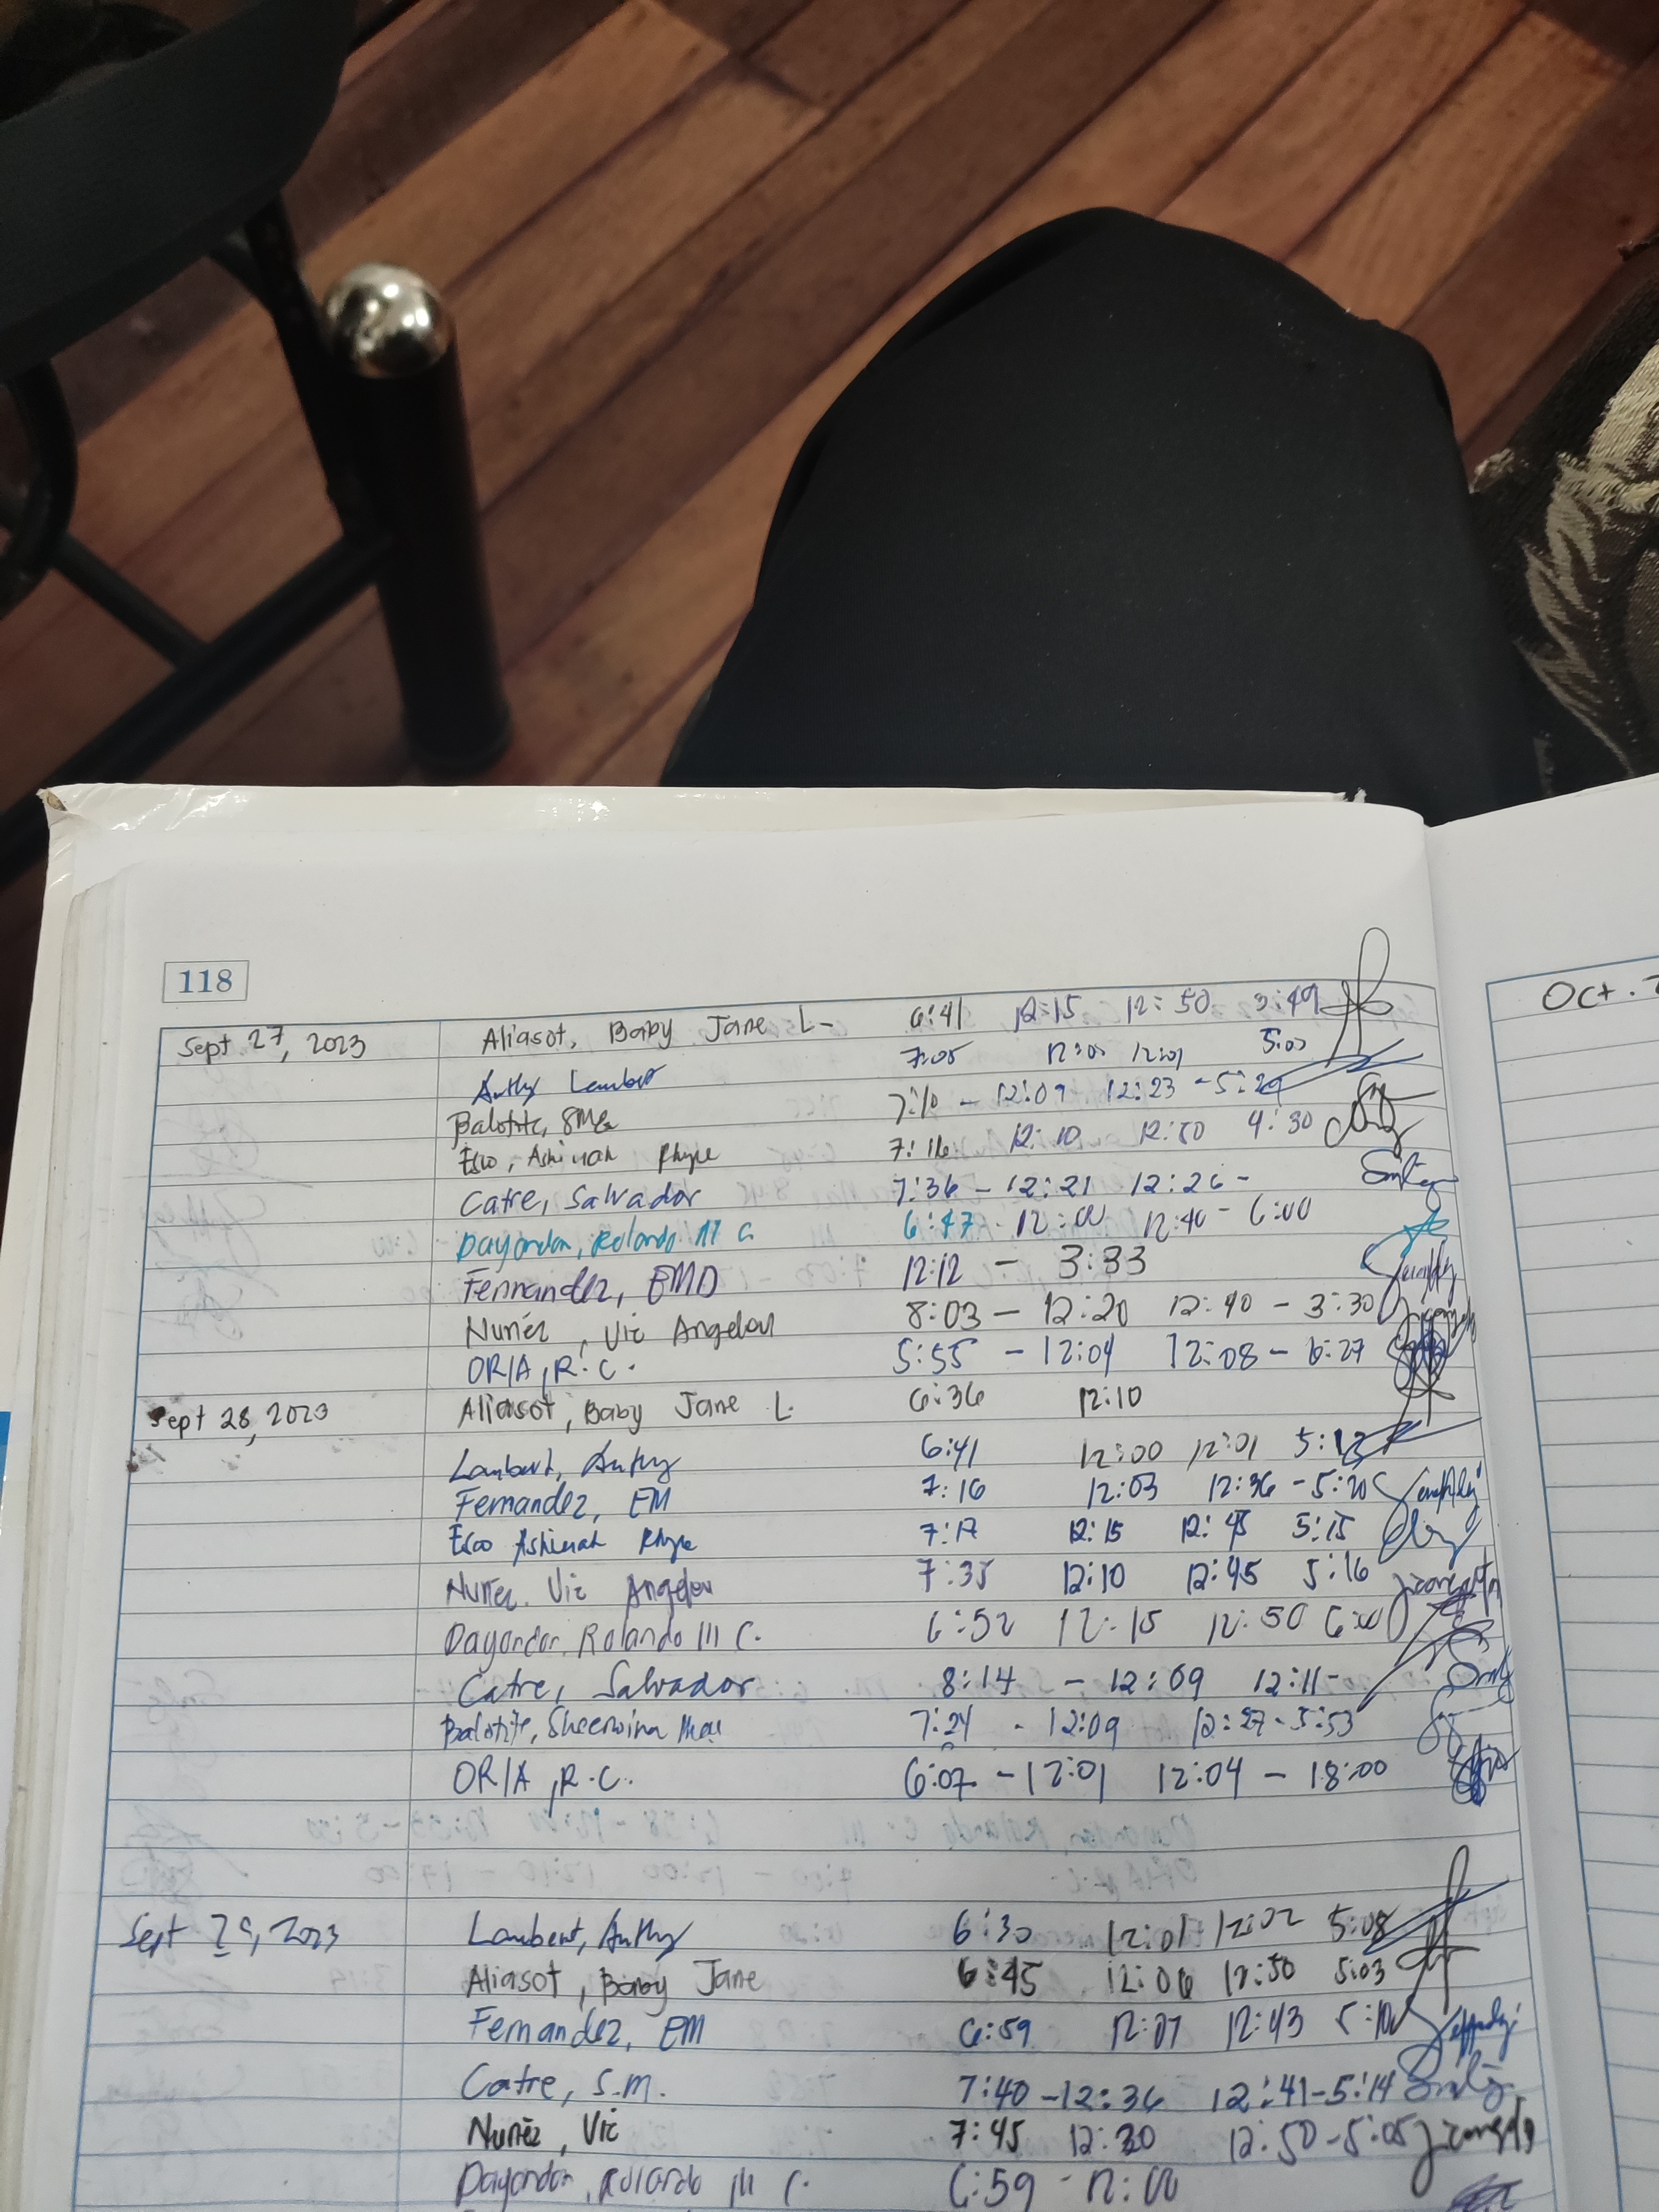 118
Sept 27, 2023 Aliasot, Baby Jane L. 6:41 12:15 12:50 3:49
Anthy Lambert 7:05 12:00 12:01 5:07
Balotite, SMG 7:10 - 12:09 12:23 - 5:29
Esoo, Ashimah Rhype 7:16 12:10 12:50 4:30
Catre, Salvador 7:36 - 12:21 12:26 -
Dayondon, Rolando III C. 6:47 - 12:00 12:40 - 6:00
Fernandez, EMD 12:12 - 3:33
Nuñez, Vic Angelou 8:03 - 12:20 12:40 - 3:30
ORIA, R.C. 5:55 - 12:04 12:08 - 6:27
Sept 28, 2023 Aliasot, Baby Jane L. 6:36 12:10
Lambert, Anthy 6:41 12:00 12:01 5:13
Fernandez, EM 7:16 12:03 12:36 - 5:20
Esoo Ashimah Rhype 7:17 12:15 12:45 5:15
Nuñez, Vic Angelou 7:35 12:10 12:45 5:16
Dayondon, Rolando III C. 6:52 12:15 12:50 6:00
Catre, Salvador 8:14 - 12:09 12:11 -
Balotite, Sheerwina Mae 7:24 - 12:09 12:27 - 5:53
ORIA, R.C. 6:07 - 12:01 12:04 - 18:00
Sept 29, 2023 Lambert, Anthy 6:30 12:01 12:02 5:08
Aliasot, Baby Jane 6:45 12:06 12:50 5:03
Fernandez, EM 6:59 12:07 12:43 5:10
Catre, S.M. 7:40 - 12:36 12:41 - 5:14
Nuñez, Vic 7:45 12:30 12:50 - 5:05
Dayondon, Rolando III C. 6:59 - 12:00
Oct.